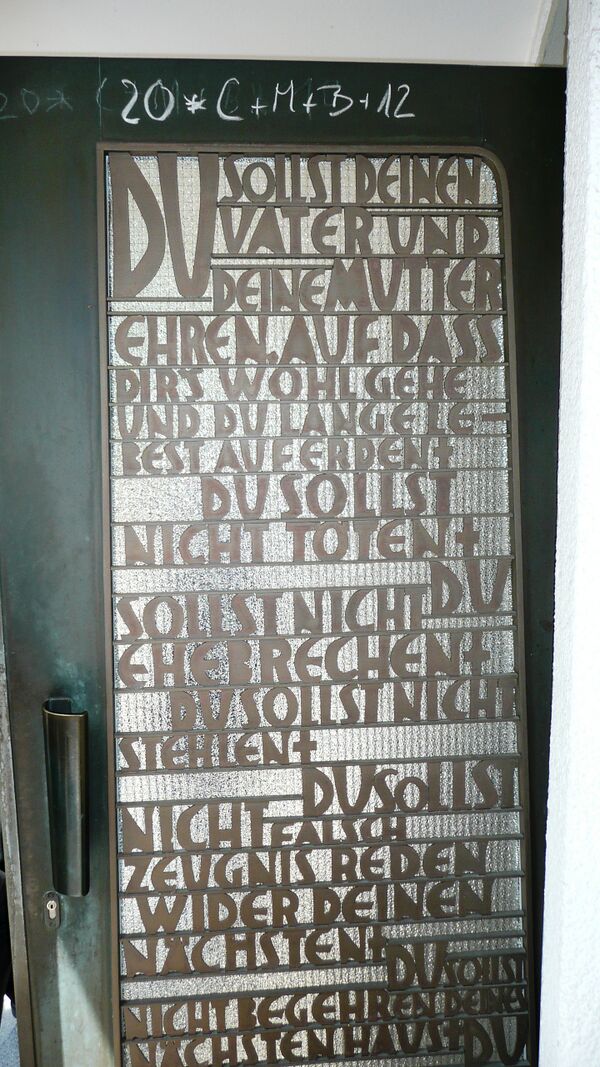 20 * C + M + B + 12
DU SOLLST DEINEN
VATER UND
DEINE MUTTER
EHREN, AUF DASS
DIR'S WOHL GEHE
UND DU LANGE LE-
BEST AUF ERDEN +
DU SOLLST
NICHT TÖTEN +
DU
SOLLST NICHT
EHEBRECHEN +
DU SOLLST NICHT
STEHLEN +
DU SOLLST
NICHT FALSCH
ZEUGNIS REDEN
WIDER DEINEN
NÄCHSTEN +
DU SOLLST
NICHT BEGEHREN DEINES
NÄCHSTEN HAUS + DU